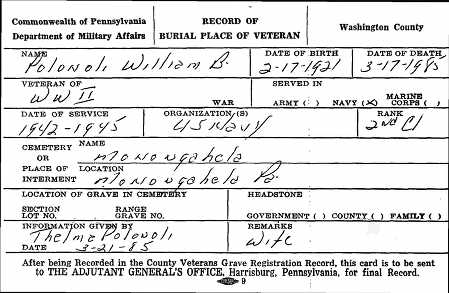 Commonwealth of Pennsylvania
Department of Military Affairs
RECORD OF
BURIAL PLACE OF VETERAN
Washington County
NAME DATE OF BIRTH DATE OF DEATH
Polonoli William B. 2-17-1921 3-17-1985
VETERAN OF SERVED IN
WW II WAR ARMY ( ) NAVY (X) MARINE CORPS ( )
DATE OF SERVICE ORGANIZATION(S) RANK
1942-1945 US Navy 2nd Cl
CEMETERY NAME
OR Monongahela
PLACE OF LOCATION
INTERMENT Monongahela Pa.
LOCATION OF GRAVE IN CEMETERY HEADSTONE
SECTION RANGE
LOT NO. GRAVE NO. GOVERNMENT ( ) COUNTY ( ) FAMILY ( )
INFORMATION GIVEN BY REMARKS
Thelma Polonoli Wife
DATE 3-21-85
After being Recorded in the County Veterans Grave Registration Record, this card is to be sent
to THE ADJUTANT GENERAL'S OFFICE, Harrisburg, Pennsylvania, for final Record.
9